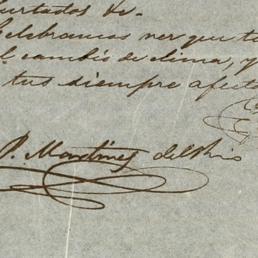 urtados de
elebramos ver que t
l cambio de clima, y
tus siempre afect
P. Martinez del Rio